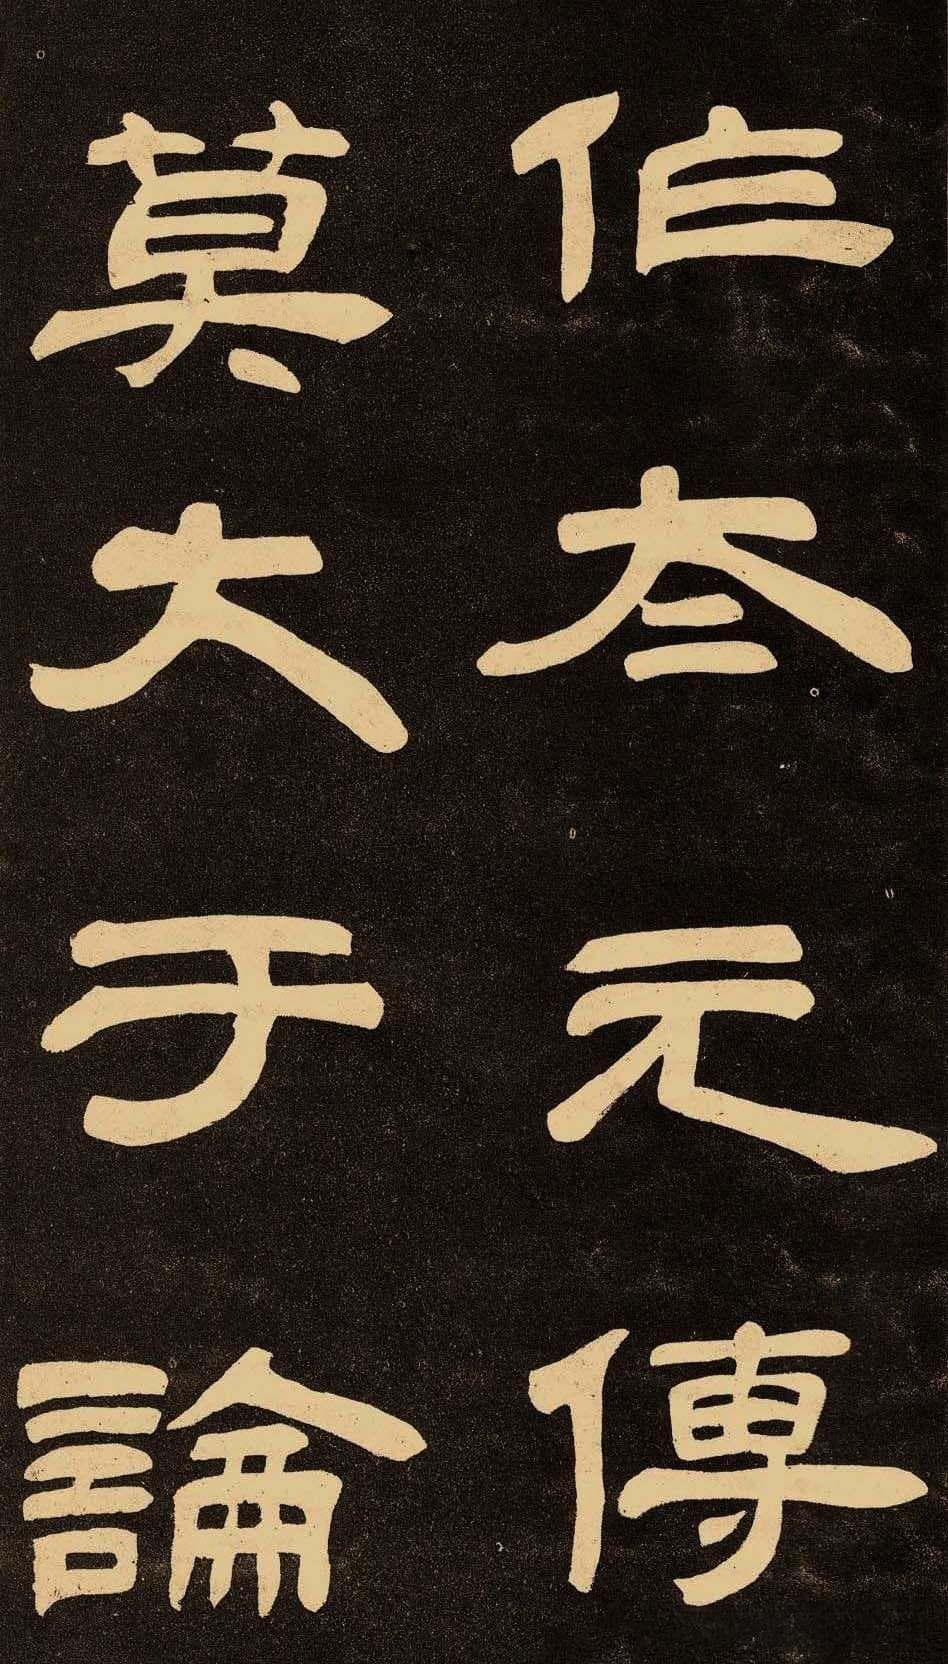 作夳元傳
莫大于論